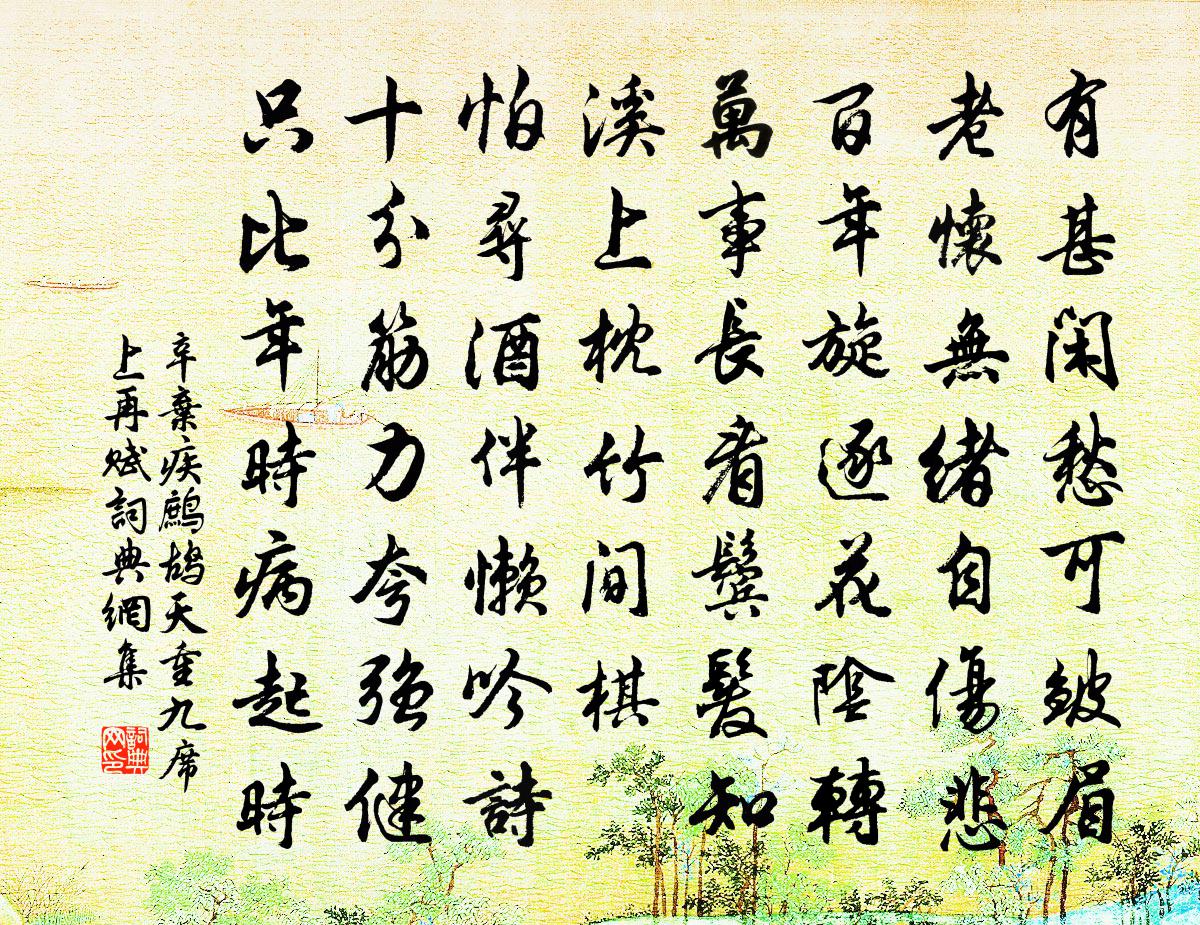 有甚閑愁可皺眉
老懷無緒自傷悲
百年旋逐花陰轉
萬事長看鬢髮知
溪上枕竹間棋
怕尋酒伴懶吟詩
十分筋力夸強健
只比年時病起時
辛棄疾鷓鴣天重九席
上再賦詞典網集
詞典
网印